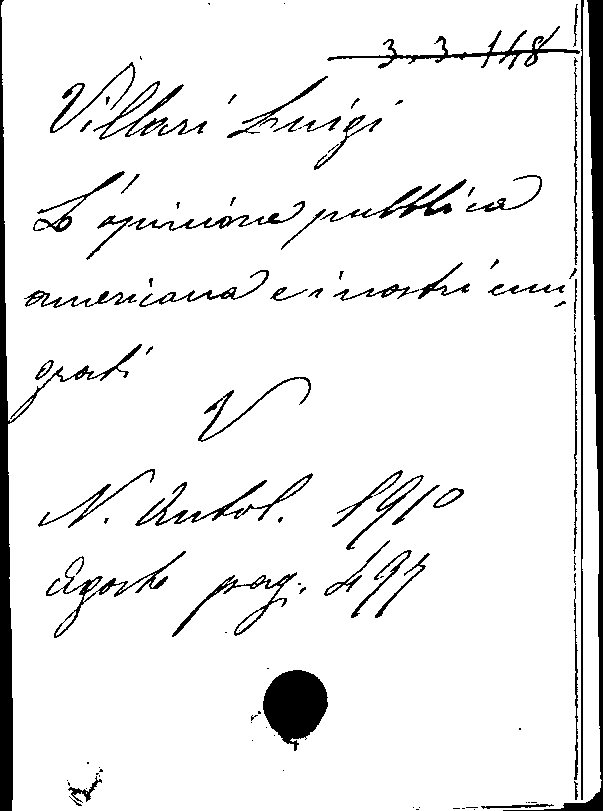 3.3.148
Villari Luigi
L'opinione pubblica
americana e i nostri emi-
grati
V
N. Antol. 1910
Agosto pag. 497